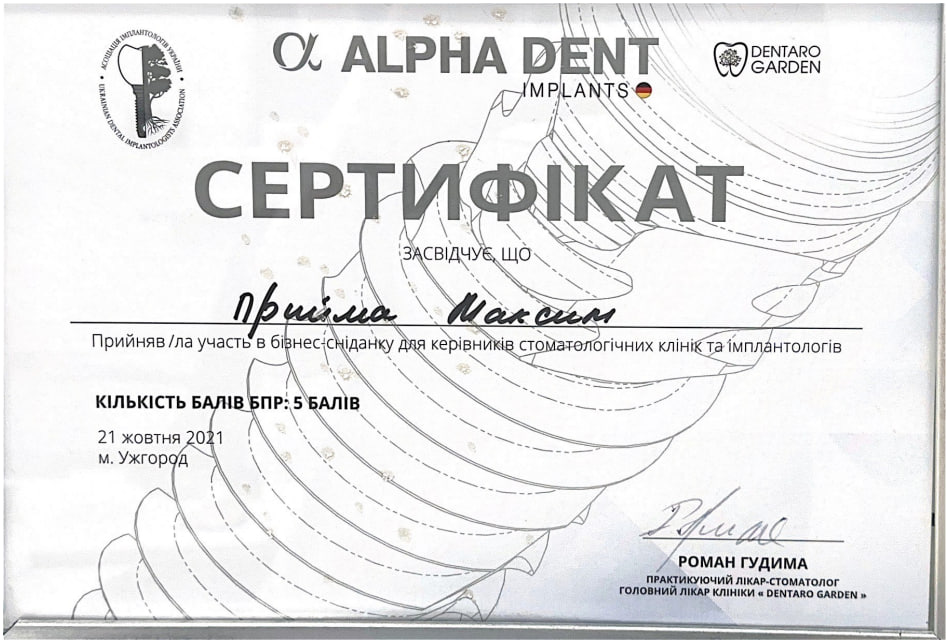 АСОЦІАЦІЯ ІМПЛАНТОЛОГІВ УКРАЇНИ
UKRAINIAN DENTAL IMPLANTOLOGISTS ASSOCIATION
α ALPHA DENT
IMPLANTS
DENTARO
GARDEN
СЕРТИФІКАТ
ЗАСВІДЧУЄ, ЩО
Прийма Максим
Прийняв/ла участь в бізнес-сніданку для керівників стоматологічних клінік та імплантологів
КІЛЬКІСТЬ БАЛІВ БПР: 5 БАЛІВ
21 жовтня 2021
м. Ужгород
РОМАН ГУДИМА
ПРАКТИКУЮЧИЙ ЛІКАР-СТОМАТОЛОГ
ГОЛОВНИЙ ЛІКАР КЛІНІКИ « DENTARO GARDEN »